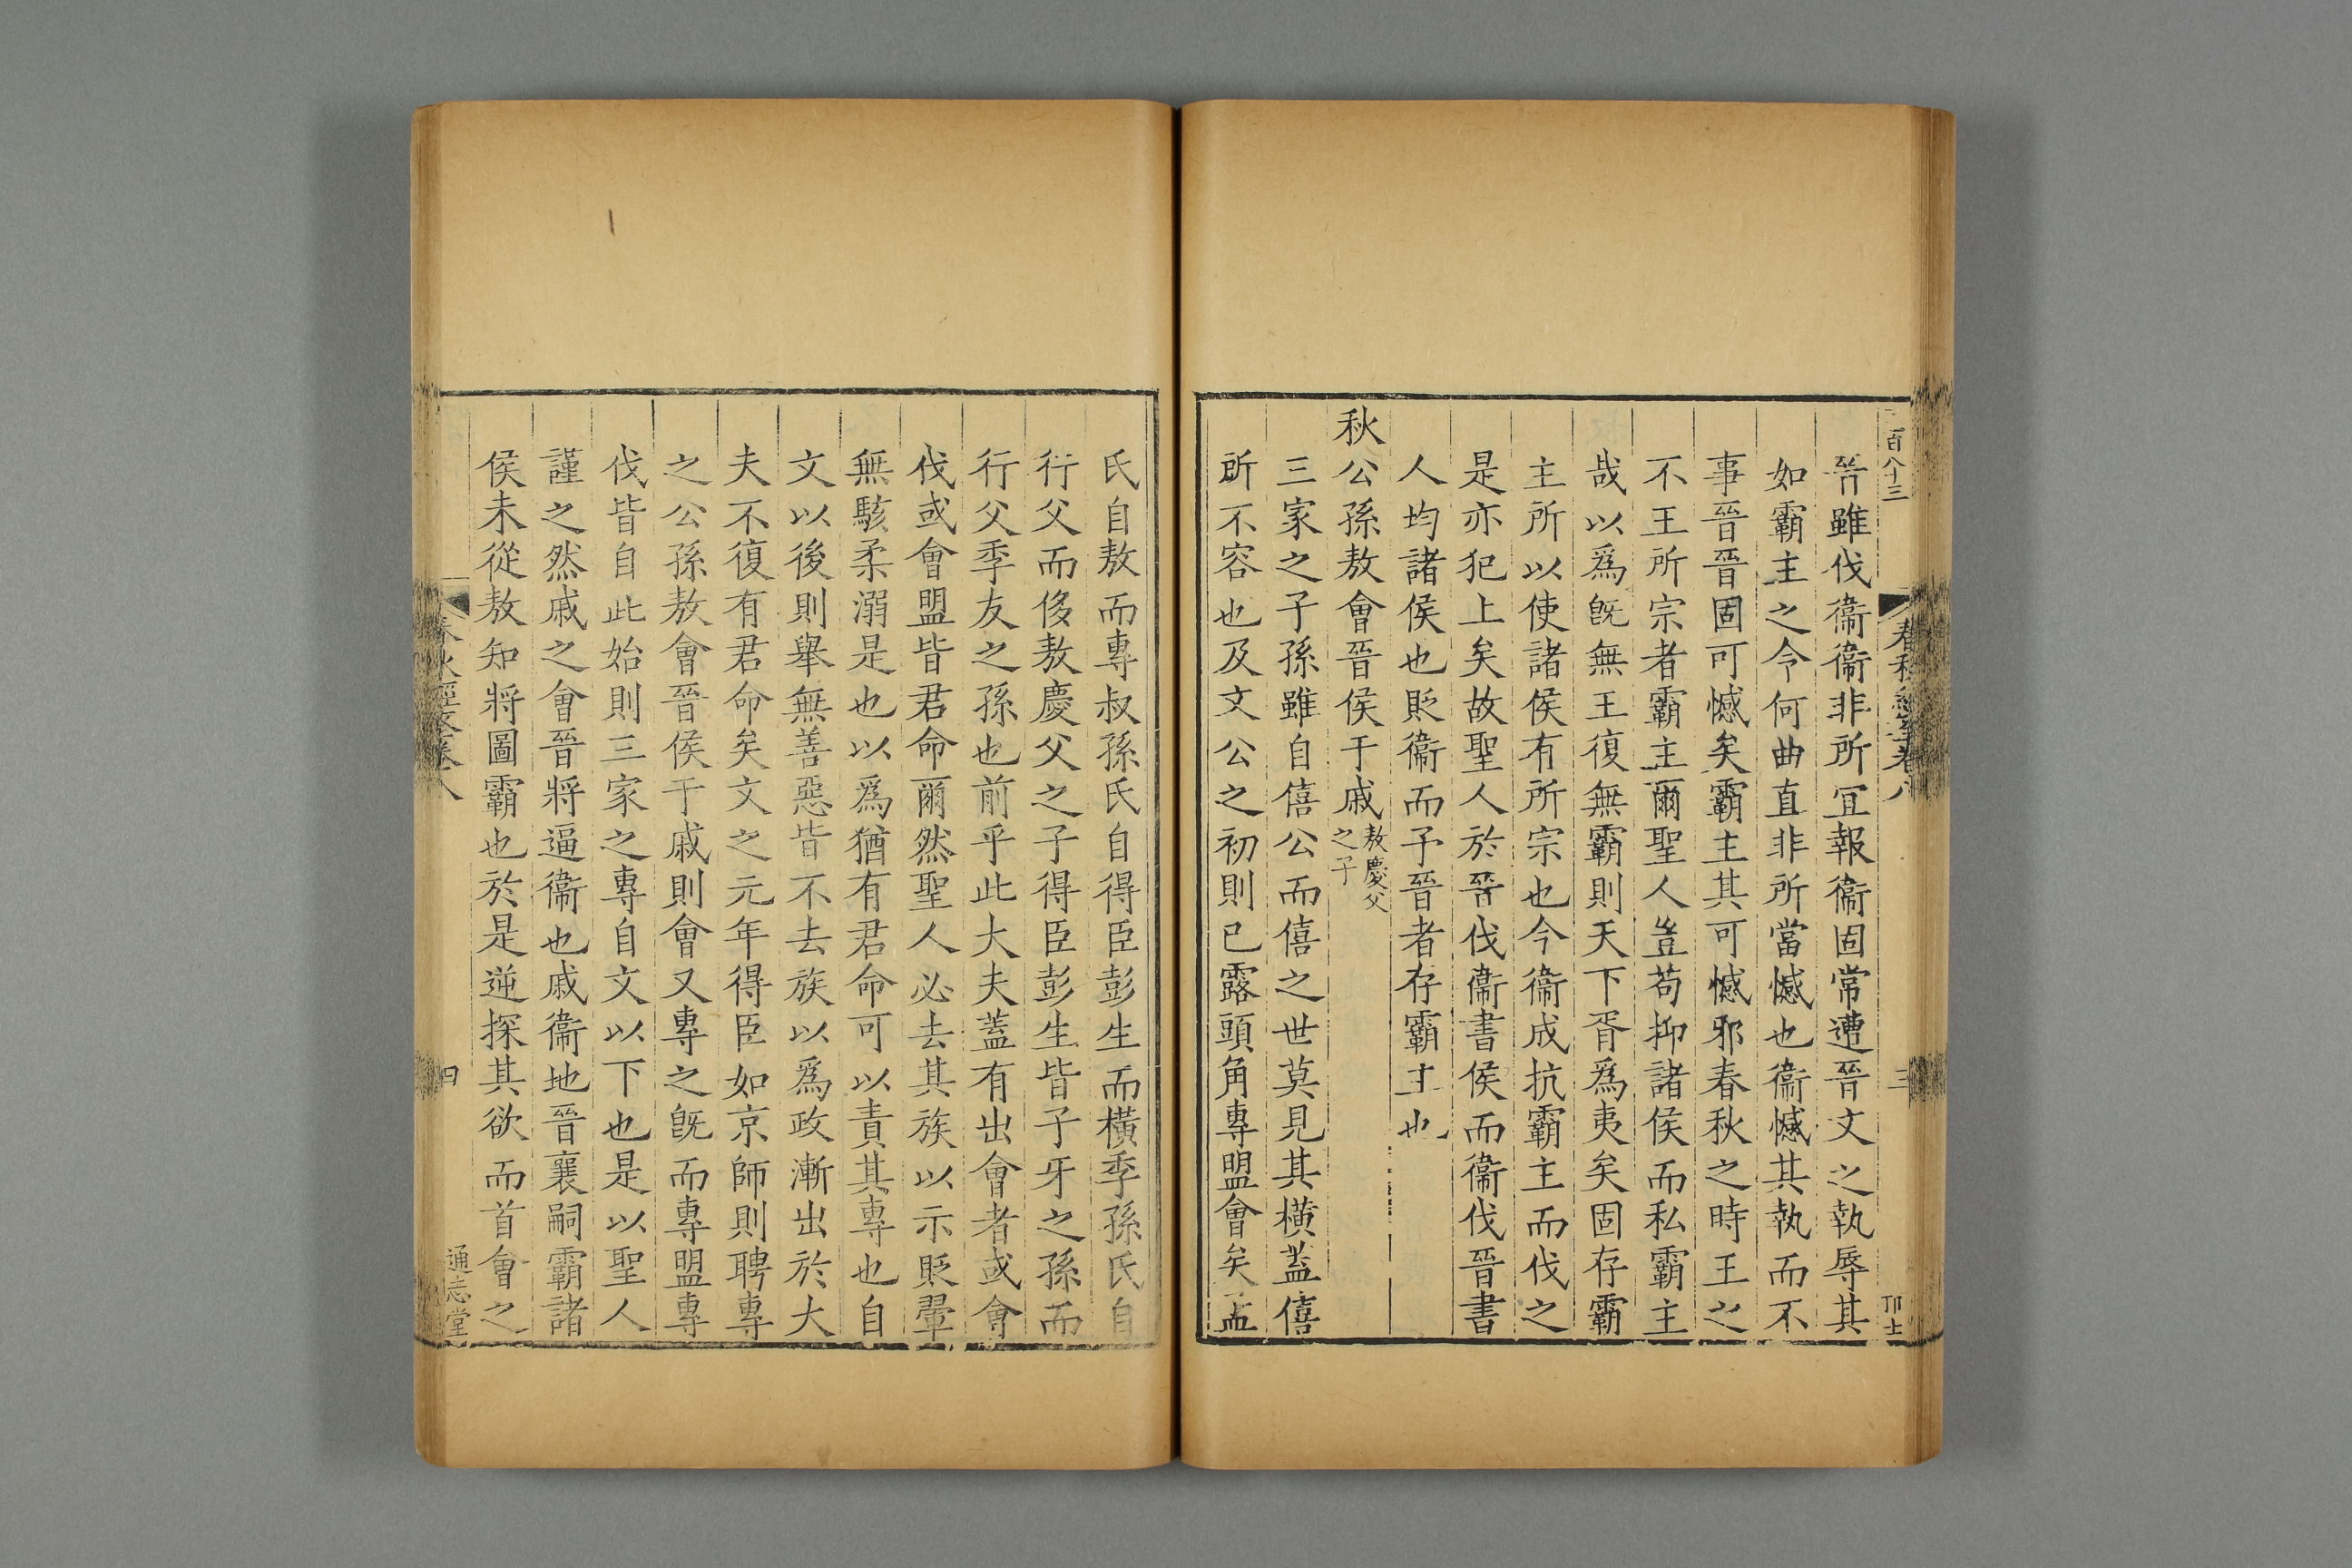 百八十三
晉雖伐衞衞非所宜報衞固常遭晉文之執辱其
如霸主之令何曲直非所當憾也衞憾其執而不
事晉晉固可憾矣霸主其可憾邪春秋之時王之
不王所宗者霸主爾聖人豈苟抑諸侯而私霸主
哉以爲旣無王復無霸則天下胥爲夷矣固存霸
主所以使諸侯有所宗也今衞成抗霸主而伐之
是亦犯上矣故聖人於晉伐衞書侯而衞伐晉書
人均諸侯也貶衞而予晉者存霸主也
秋公孫敖會晉侯于戚敖慶父之子
三家之子孫雖自僖公而僖之世莫見其橫蓋僖
所不容也及文公之初則已露頭角專盟會矣孟
氏自敖而專叔孫氏自得臣彭生而橫季孫氏自
行父而侈敖慶父之子得臣彭生皆子牙之孫而
行父季友之孫也前乎此大夫蓋有出會者或會
伐或會盟皆君命爾然聖人必去其族以示貶翬
無駭柔溺是也以爲猶有君命可以責其專也自
文以後則舉無善惡皆不去族以爲政漸出於大
夫不復有君命矣文之元年得臣如京師則聘專
之公孫敖會晉侯于戚則會又專之旣而專盟專
伐皆自此始則三家之專自文以下也是以聖人
謹之然戚之會晉將逼衞也戚衞地晉襄嗣霸諸
侯未從敖知將圖霸也於是逆探其欲而首會之
四
通志堂